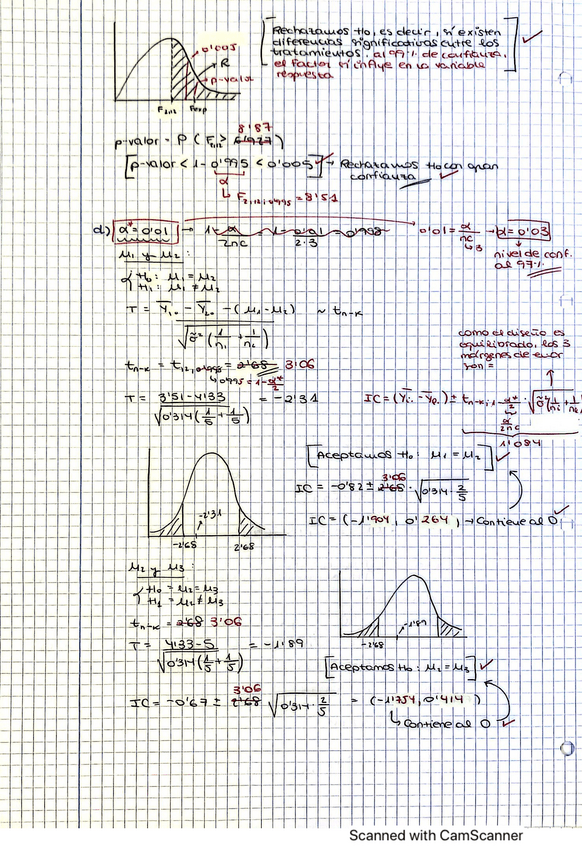 Rechazamos Ho, es decir, sí existen
diferencias significativas entre los
tratamientos, al 99% de confianza,
el factor sí influye en la variable
respuesta
0'005
R
p-valor
F2,12 Fexp
8'87
p-valor = P (F2,12 > )
[p-valor < 1-0'995 < 0'005] → Rechazamos Ho con gran
confianza
α
↳ F2,12,0'995 = 8'51
d) α* = 0'01 → 1-α/2nc 1-0'01/2·3 = 0'998 0'01 = α/nc →3 → α = 0'03
nivel de conf.
al 97%
μ1 y μ2:
Ho: μ1 = μ2
H1: μ1 ≠ μ2
T = Ȳ1. - Ȳ2. - (μ1-μ2) / √σ̂²(1/n1 + 1/n2) ~ tn-k
como el diseño es
equilibrado, los 3
márgenes de error
son =
tn-k = t12,0'998 = 2'68 3'06
↳ 0'995 = 1-α*/2
T = 3'51-4'33 / √0'314(1/5+1/5) = -2'31
IC = (Ȳi. - Ȳl.) ± tn-k,1-α*/2 · √σ̂²(1/ni + 1/nl
α/2nc
1'084
[Aceptamos Ho: μ1 = μ2]
3'06
IC = -0'82 ± 2'68 · √0'314 · 2/5
IC = (-1'904, 0'264) → Contiene al 0
-2'31
-2'68 2'68
μ2 y μ3:
Ho = μ2 = μ3
H1 = μ2 ≠ μ3
tn-k = 2'68 3'06
T = 4'33-5 / √0'314(1/5+1/5) = -1'89
-1'89
-2'68
[Aceptamos Ho: μ2 = μ3]
3'06
IC = -0'67 ± 2'68 √0'314 · 2/5 = (-1'754, 0'414)
↳ Contiene al 0
Scanned with CamScanner